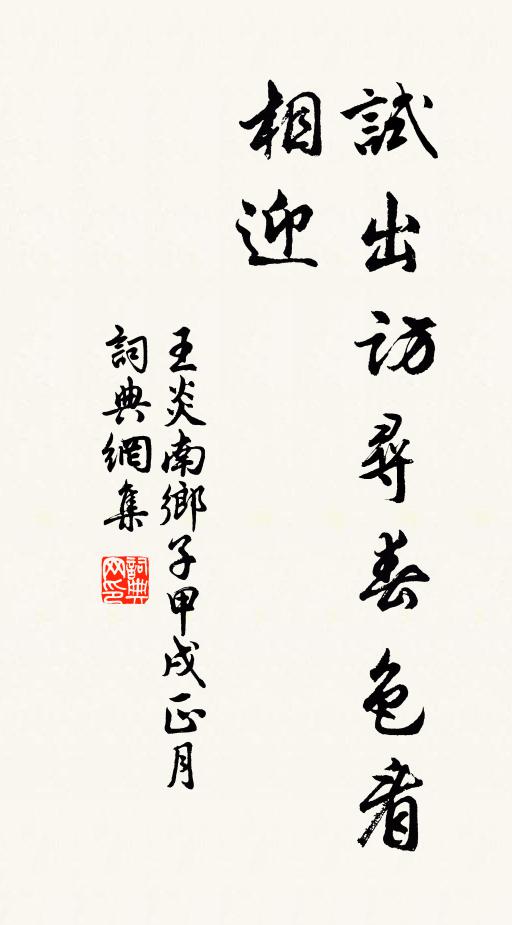 試出訪尋春色看
相迎
王炎南鄉子甲戌正月
詞典網集
詞典网印